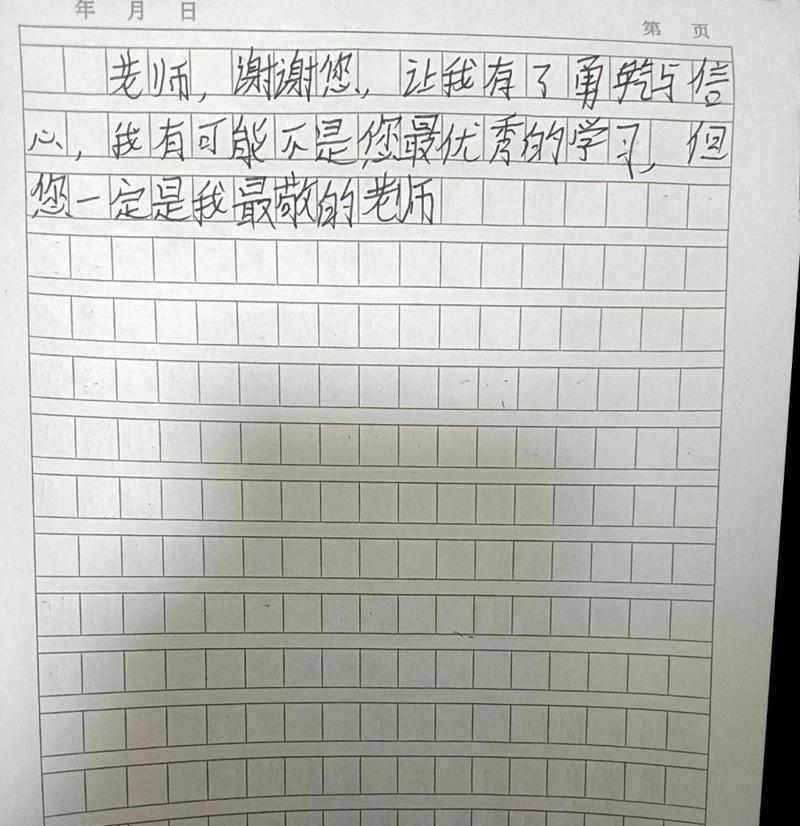 年 月 日
第 页
老师，谢谢您，让我有了勇气与信
心，我有可能不是您最优秀的学习，但
您一定是我最敬的老师